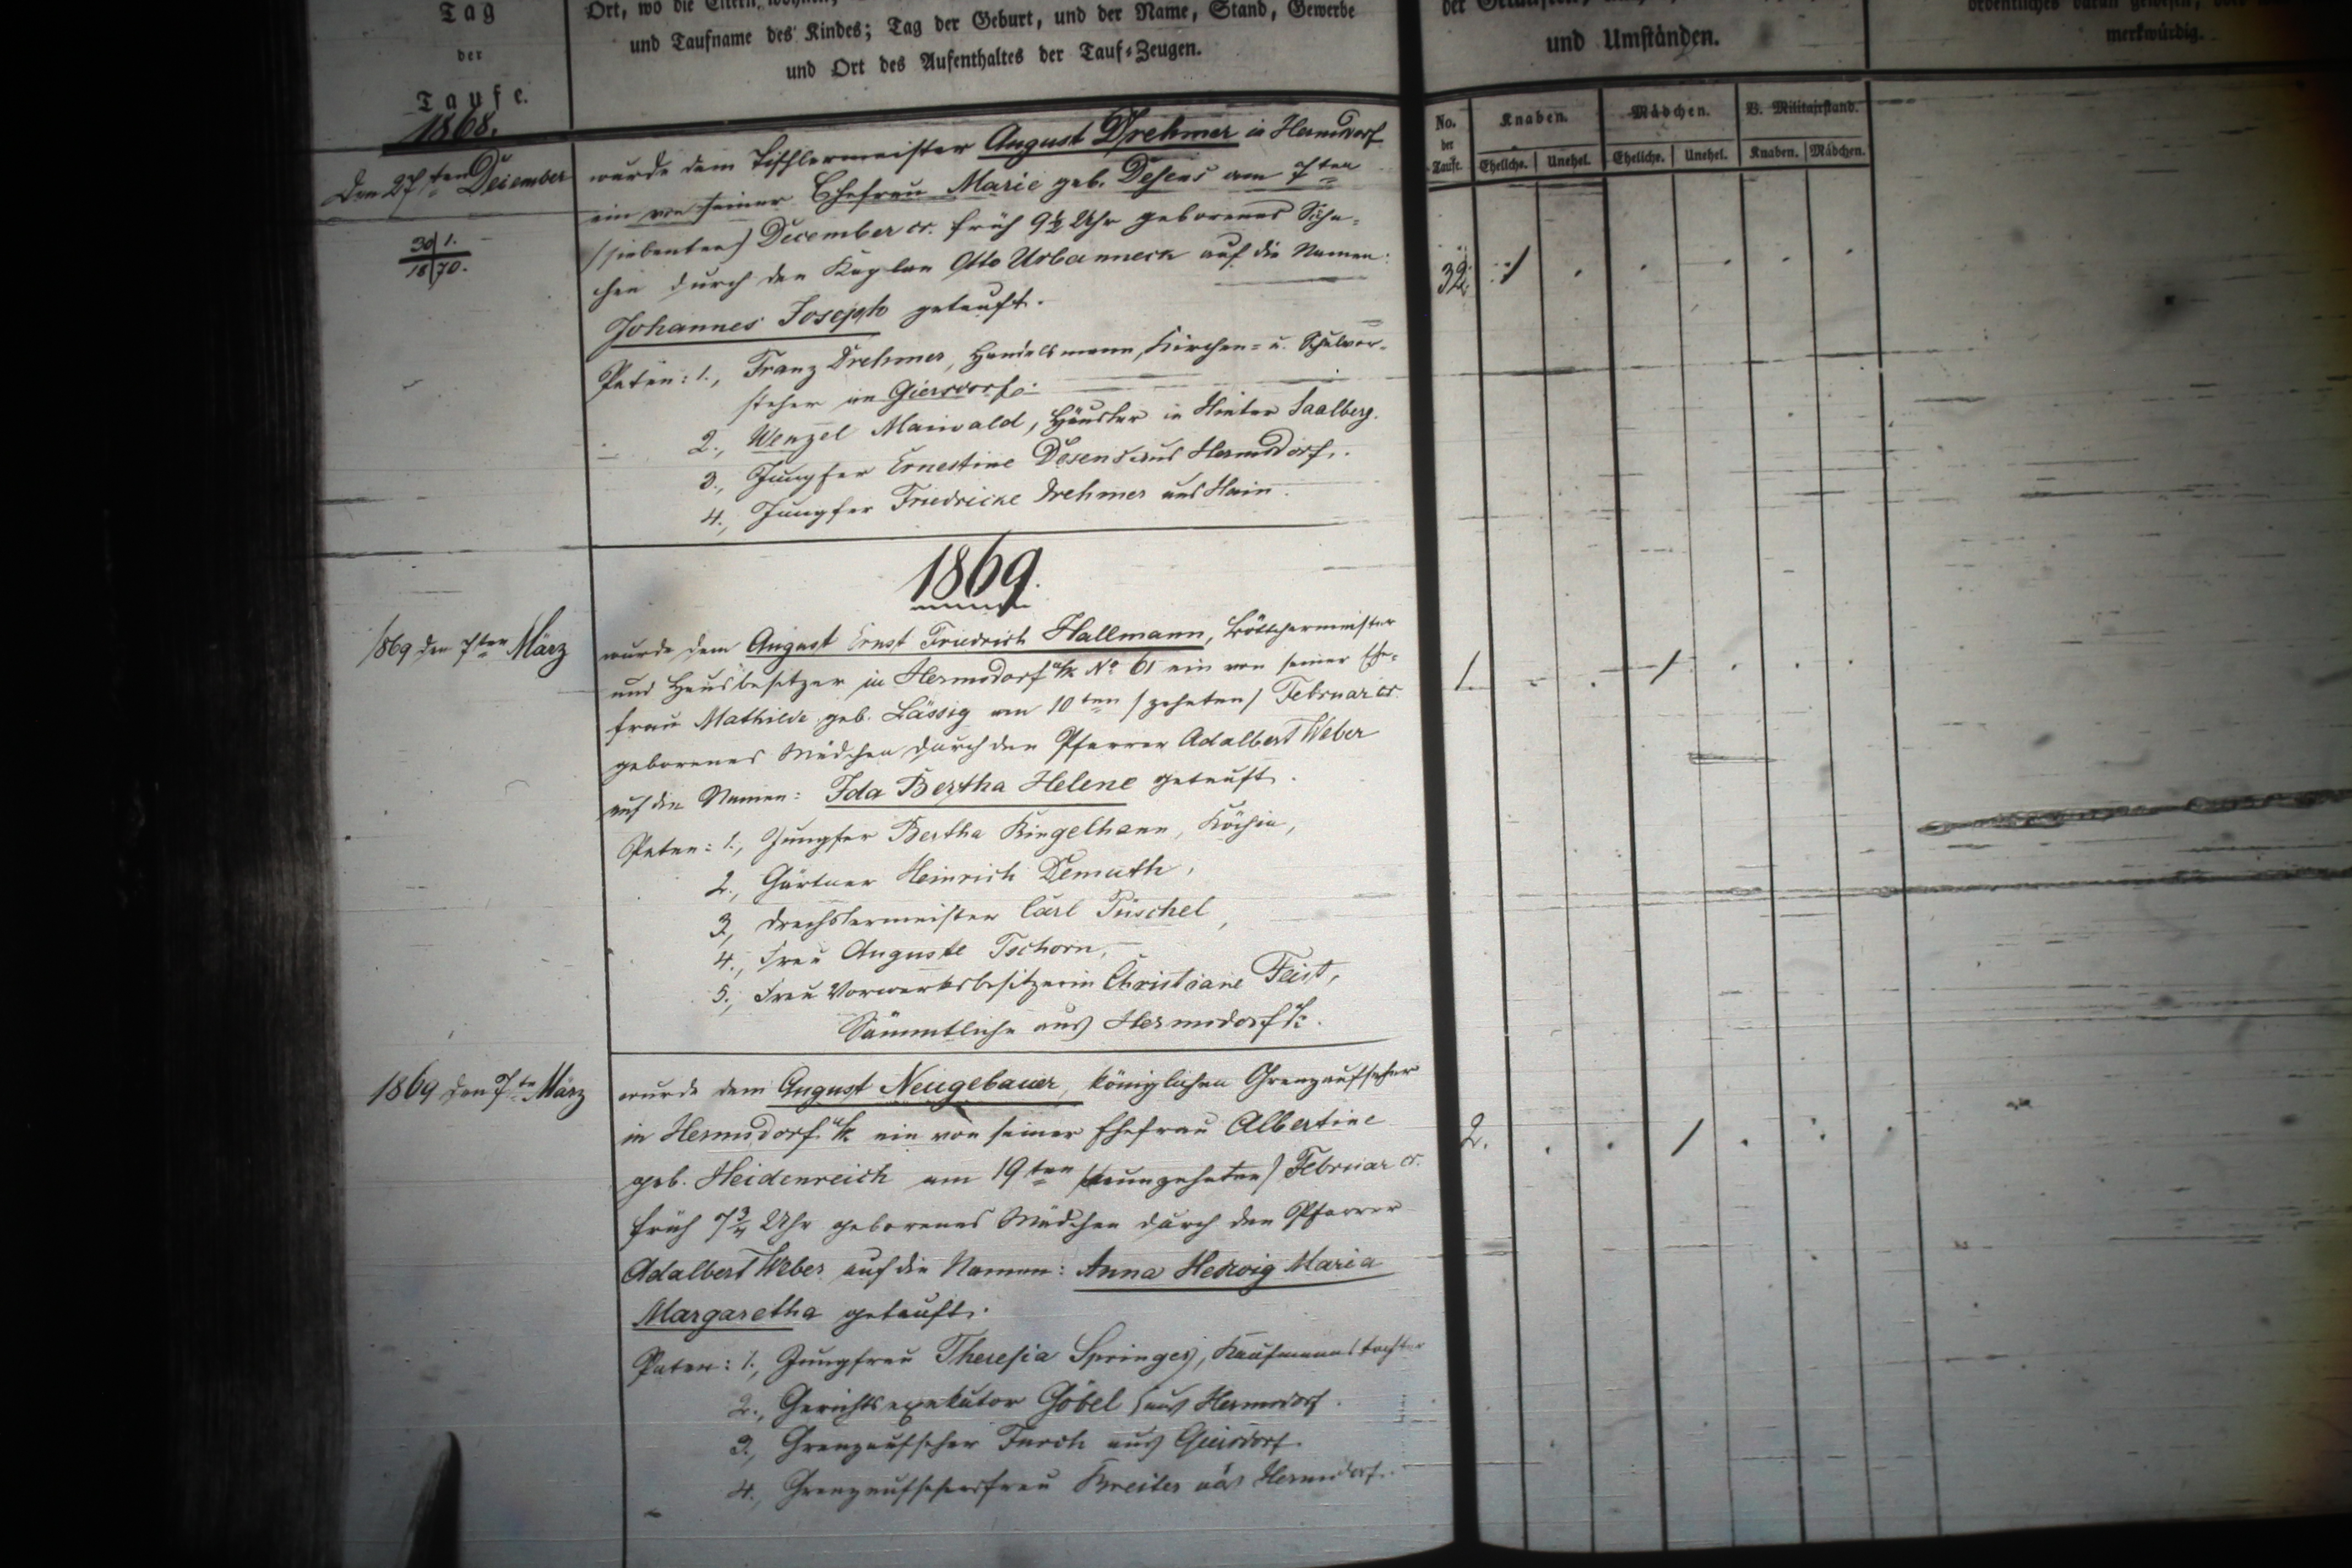 Tag
der
Taufe.
Ort, wo die Eltern wohnen,
und Taufname des Kindes; Tag der Geburt, und der Name, Stand, Gewerbe
und Ort des Aufenthaltes der Tauf-Zeugen.
und Umständen.
merkwürdig.
No. der Taufe.
Knaben.
Mädchen.
B. Militairstand.
Eheliche. Unehel. Eheliche. Unehel. Knaben. Mädchen.
1868.
Den 27ten December
30 1.
18 70.
wurde dem Tischlermeister August Drehmer in Hermsdorf
ein von seiner Ehefrau Marie geb. Desens am 7ten
(siebenten) December cr. früh 9½ Uhr geborenes Söhn-
chen durch den Kaplan Otto Urbanneck auf die Namen:
Johannes Joseph getauft.
Paten: 1., Franz Drehmer, Handelsmann, Kirchen- u. Schulvor-
steher in Giersdorf.
2., Wenzel Maiwald, Häusler in Hinter Saalberg.
3., Jungfer Ernestine Desens aus Hermsdorf.
4., Jungfer Friedricke Drehmer aus Hain.
32. 1
1869.
1869 den 7ten März
wurde dem August Ernst Friedrich Hallmann, Böttchermeister
und Hausbesitzer in Hermsdorf u/K No 61 ein von seiner Ehe-
frau Mathilde geb. Lässig am 10ten (zehnten) Februar cr.
geborenes Mädchen durch den Pfarrer Adalbert Weber
auf die Namen: Ida Bertha Helene getauft.
Paten: 1., Jungfer Bertha Ringelhann, Köchin,
2., Gärtner Heinrich Demuth,
3., Drechslermeister Carl Püschel,
4., Frau Auguste Tschorn,
5., Frau Vorwerksbesitzerin Christiane Feist,
Sämmtliche aus Hermsdorf u/K.
1 1
1869 den 7ten März
wurde dem August Neugebauer, königlichen Grenzaufseher
in Hermsdorf u/K ein von seiner Ehefrau Albertine
geb. Heidenreich am 19ten (neunzehnten) Februar cr.
früh 7¾ Uhr geborenes Mädchen durch den Pfarrer
Adalbert Weber auf die Namen: Anna Hedwig Maria
Margaretha getauft.
Paten: 1., Jungfrau Theresia Springer, Kaufmannstochter
2., Gerichtsexekutor Göbel aus Hermsdorf.
3., Grenzaufseher aus Giersdorf.
4., Grenzaufsehersfrau aus Hermsdorf.
2. 1